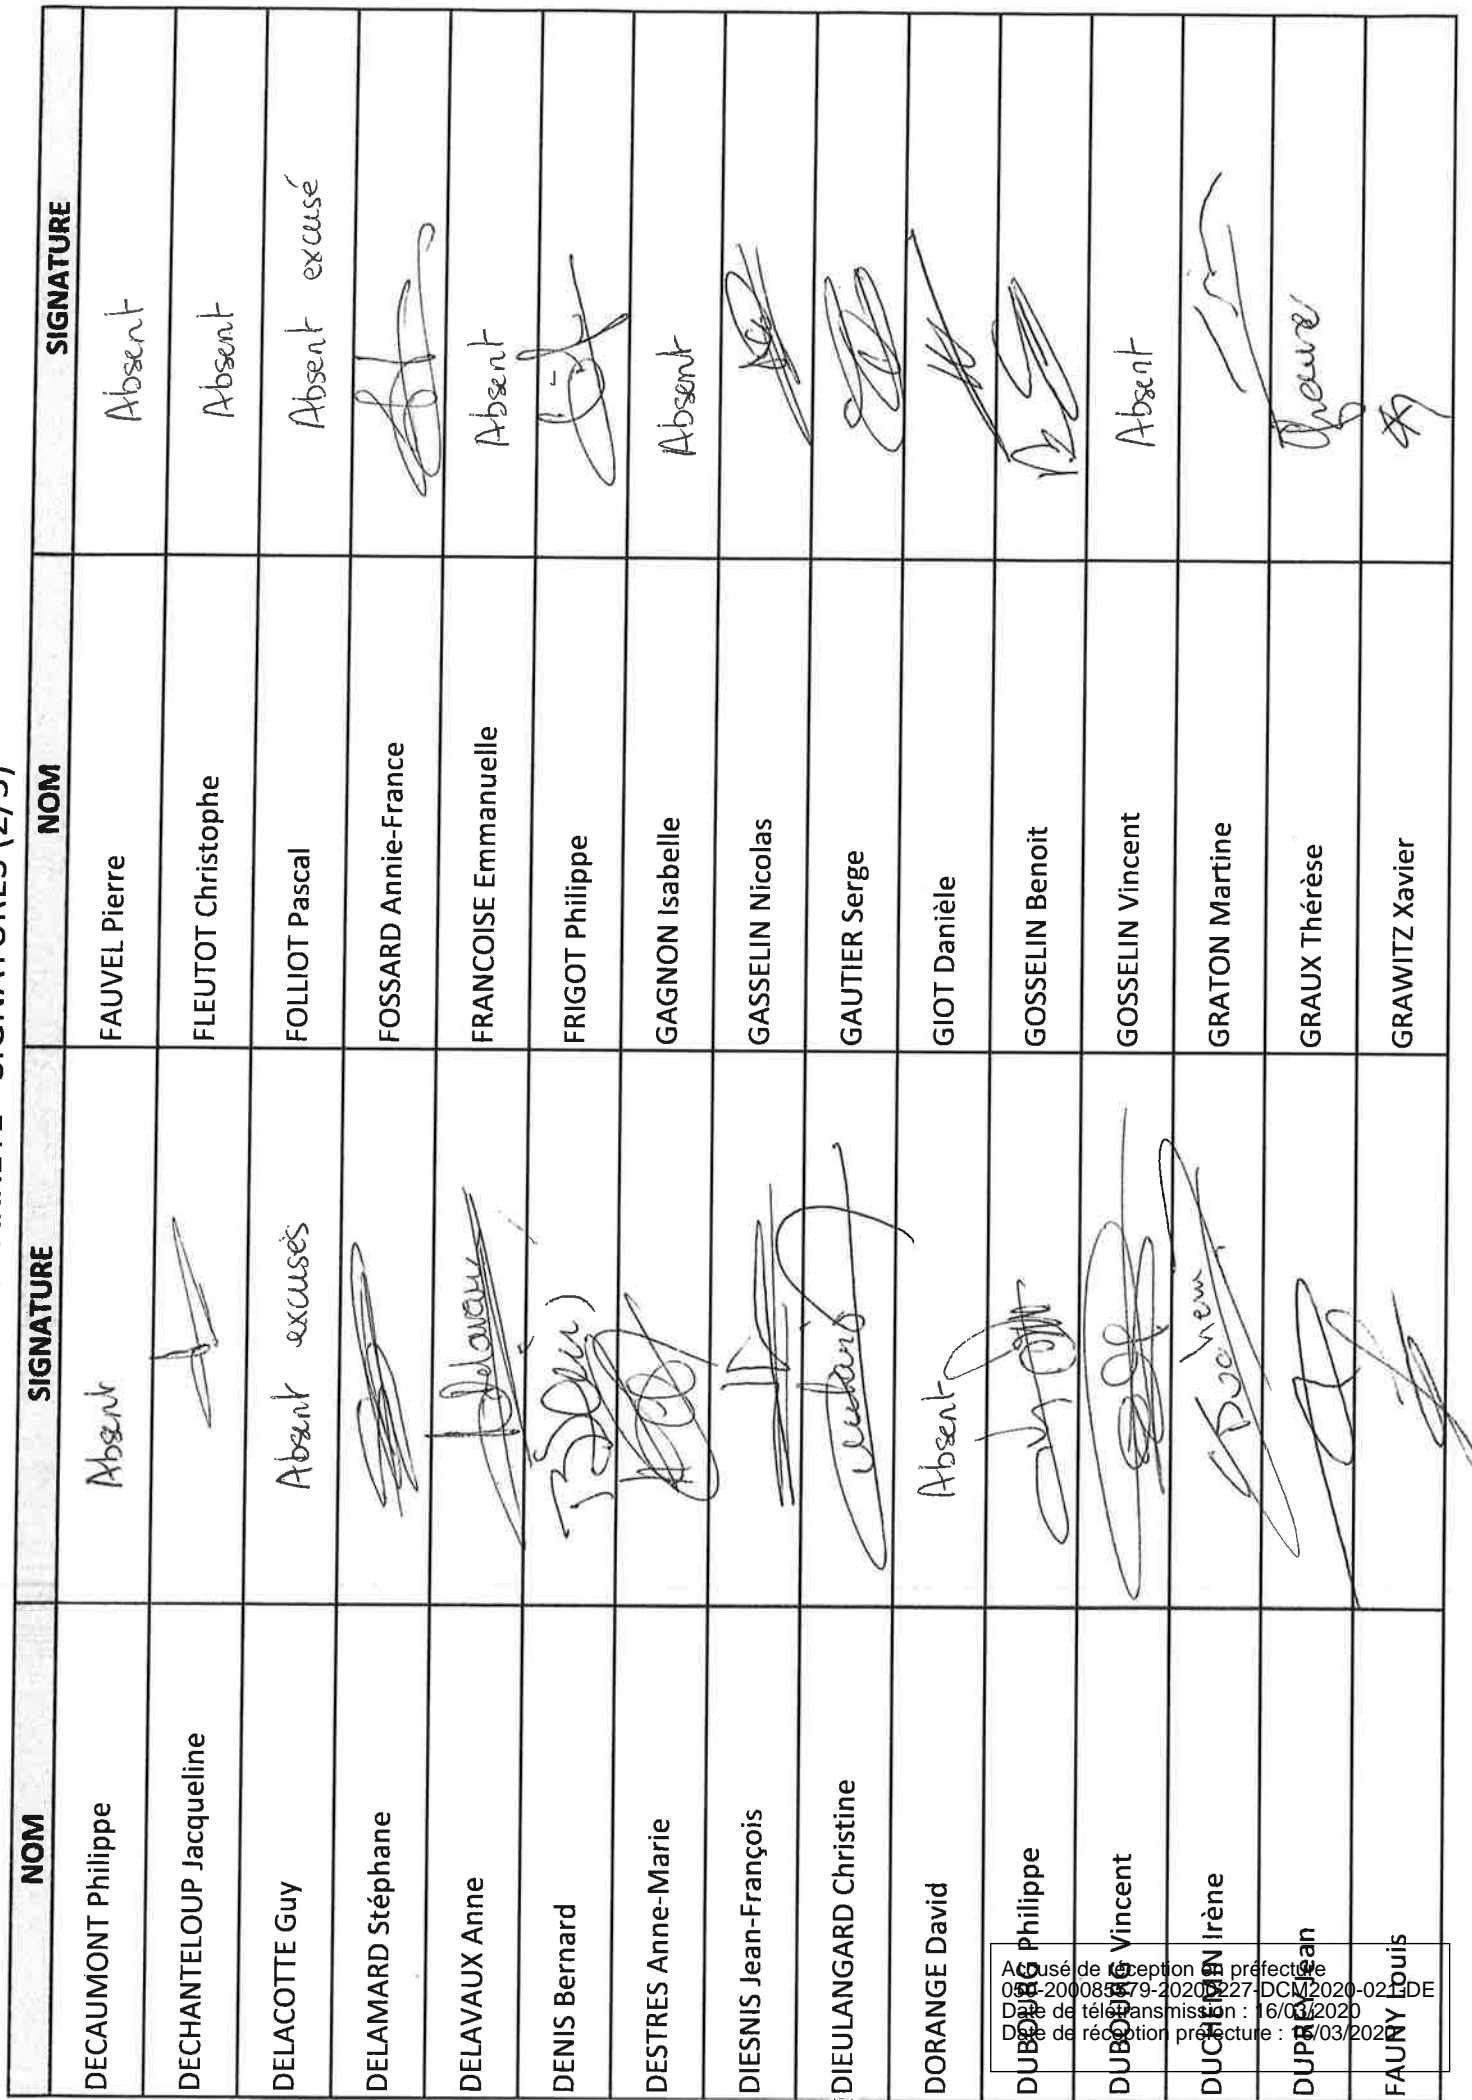 SIGNATURES (2/5)
NOM SIGNATURE NOM SIGNATURE
DECAUMONT Philippe Absent FAUVEL Pierre Absent
DECHANTELOUP Jacqueline FLEUTOT Christophe Absent
DELACOTTE Guy Absent excusés FOLLIOT Pascal Absent excusé
DELAMARD Stéphane FOSSARD Annie-France
DELAVAUX Anne Delavaux FRANCOISE Emmanuelle Absent
DENIS Bernard FRIGOT Philippe
DESTRES Anne-Marie GAGNON Isabelle Absent
DIESNIS Jean-François GASSELIN Nicolas
DIEULANGARD Christine GAUTIER Serge
DORANGE David Absent GIOT Danièle
DUBOURG Philippe GOSSELIN Benoit
DUBOURG Vincent GOSSELIN Vincent Absent
DUCHEMIN Irène GRATON Martine
DUPREY Jean GRAUX Thérèse
FAUNY Louis GRAWITZ Xavier
Accusé de réception en préfecture
050-200085579-20200227-DCM2020-021-DE
Date de télétransmission : 16/03/2020
Date de réception préfecture : 16/03/2020